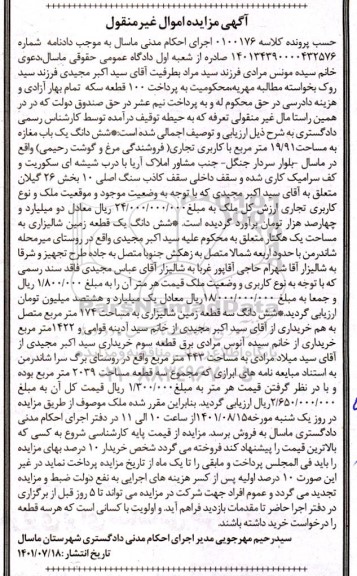 آگهی مزایده اموال غیر منقول
حسب پرونده کلاسه ۰۱۰۰۱۷۶ اجرای احکام مدنی ماسال به موجب دادنامه شماره
۱۴۰۱۳۴۳۹۰۰۰۰۴۳۲۵۷۶ صادره از شعبه اول دادگاه عمومی حقوقی ماسال،دعوی
خانم سیده مونس مرادی فرزند سید مراد بطرفیت آقای سید اکبر مجیدی فرزند سید
روک بخواسته مطالبه مهریه،محکومیت به پرداخت ۱۰۰ قطعه سکه تمام بهار آزادی و
هزینه دادرسی در حق محکوم له و به پرداخت نیم عشر در حق صندوق دولت که در
همین راستا مال غیر منقولی تعرفه که به حیطه توقیف درآمده توسط کارشناس رسمی
دادگستری به شرح ذیل ارزیابی و توصیف اجمالی شده است:*شش دانگ یک باب مغازه
به مساحت ۱۹/۹۱ متر مربع با کاربری تجاری( فروشندگی مرغ و گوشت رحیمی) واقع
در ماسال -بلوار سردار جنگل- جنب مشاور املاک آریا با درب شیشه ای سکوریت و
کف سرامیک کاری شده و سقف داخلی سقف کاذب سنگ اصلی ۱۰ بخش ۲۶ گیلان
متعلق به آقای سید اکبر مجیدی که با توجه به وضعیت موجود و موقعیت ملک و نوع
کاربری تجاری ارزش کل ملک به مبلغ ۲۴/۰۰۰/۰۰۰/۰۰۰ ریال معادل دو میلیارد و
چهارصد هزار تومان برآورد گردیده است. *شش دانگ یک قطعه زمین شالیزاری به
مساحت یک هکتار متعلق به محکوم علیه سید اکبر مجیدی واقع در روستای میرمحله
شاندرمن با حدود اربعه شمالا متصل به زهکش جنوبا متصل به جاده طرح تجهیز و شرقا
به شالیزار آقا شهرام حاجی آقاپور غربا به شالیزار آقای عباس مجیدی فاقد سند رسمی
که با توجه به نوع کاربری و وضعیت ملک قیمت هر متر آن را به مبلغ ۱/۸۰۰/۰۰۰ ریال
و جمعا به مبلغ ۱۸/۰۰۰/۰۰۰/۰۰۰ ریال معادل یک میلیارد و هشتصد میلیون تومان
ارزیابی گردید.*شش دانگ سه قطعه زمین شالیزاری به مساحت ۱۷۴ متر مربع متصل
به هم خریداری از آقای سید اکبر مجیدی از خانم سید آدینه قوامی و ۱۴۲۲ متر مربع
خریداری از خانم سیده آنوس مرادی برق قطعه سوم خریداری سید اکبر مجیدی از
آقای سید میلاد مرادی به مساحت ۴۴۳ متر مربع واقع در روستای برگ سرا شاندرمن
به استناد مبایعه نامه های ابرازی که مجموع سه قطعه مساحت ۲۰۳۹ متر مربع بوده
و با در نظر گرفتن قیمت هر متر به مبلغ ۱/۳۰۰/۰۰۰ ریال قیمت کل آن به مبلغ
۲/۶۵۰/۰۰۰/۰۰۰ریال ارزیابی گردید. بنابراین مقرر شده ملک موصوف از طریق مزایده
در روز یک شنبه مورخه۱۴۰۱/۰۸/۱۵از ساعت ۱۰ الی ۱۱ در دفتر اجرای احکام مدنی
دادگستری ماسال به فروش برسد. مزایده از قیمت پایه کارشناسی شروع به کسی که
بالاترین قیمت را پیشنهاد کند فروخته می گردد شخص خریدار ۱۰ درصد بهای مزایده
را باید فی المجلس پرداخت و مابقی را تا یک ماه از تاریخ مزایده پرداخت نماید در غیر
این صورت ۱۰ درصد اولیه پس از کسر هزینه های اجرایی به نفع دولت ضبط و مزایده
تجدید می گردد و عموم افراد جهت شرکت در مزایده می تواند تا ۵ روز قبل از برگزاری
در دفتر اجرا حاضر تا مقدمات بازدید فراهم آید. و اولویت با کسانی است که هر سه قطعه
را درخواست خرید داشته باشند.
سید رحیم مهرجویی مدیر اجرای احکام مدنی دادگستری شهرستان ماسال
تاریخ انتشار :۱۴۰۱/۰۷/۱۸